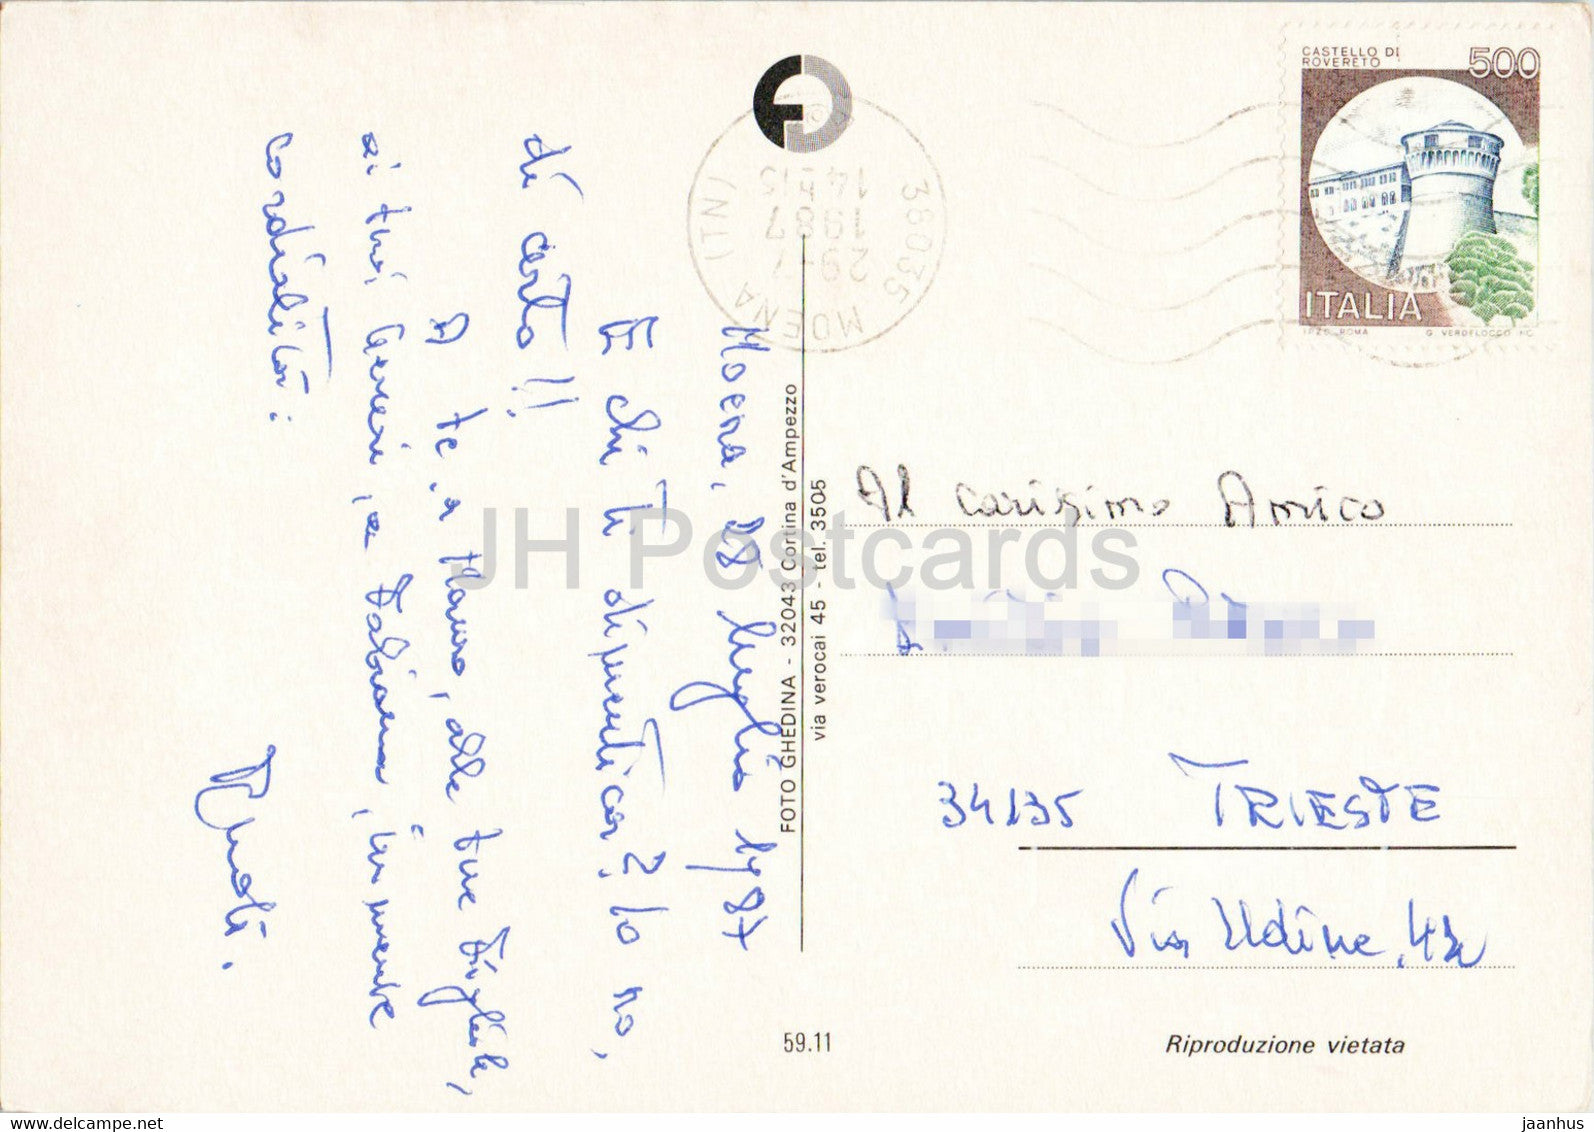 Moena, 28 luglio 1987
E chi ti dimentica? Io no,
di certo!!
A te, a Mauro, alle tue figliole,
ai tuoi generi, a Fabiana, vivamente
cordialità:
FOTO GHEDINA - 32043 Cortina d'Ampezzo
via verocai 45 - tel. 3505
38035 MOENA (TN)
29-7
1987
14-15
CASTELLO DI
ROVERETO
500
ITALIA
I.P.Z.S. ROMA
G. VERDELOCCO INC.
Al carissimo Amico
34135 TRIESTE
Via Udine, 42
59.11
Riproduzione vietata
JH Postcards
www.delcampe.net
jaanhus